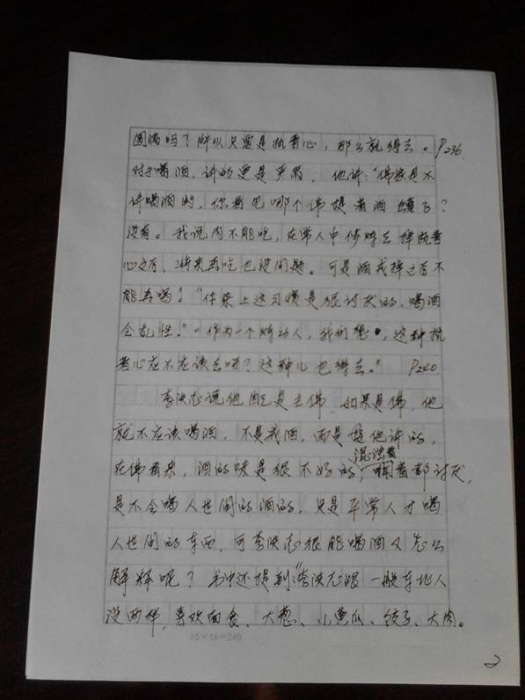 圆满吗？所以只要是执着心，那么就得去。P236
对于喝酒，讲的更是严重，他讲：“佛教是不
许喝酒的，你看见哪个佛提着酒罐子？
没有。我说肉不能吃，在常人中修炼去掉执著
心之后，将来再吃也没问题。可是酒戒掉之后不
能再喝！”“任来上这习惯是很讨厌的，喝酒
会乱性。”“作为一个炼功人，我们想，这种执
著心应不应该去呀？这种心也得去。” P240
李洪志说他自己是主佛，如果是佛，他
就不应该喝酒，不是戒酒，而是他讲的，
在佛看来，酒的味是很不好的，混浊着
闻着都讨厌，
是不会喝人世间的酒的，只是平常人才喝
人世间的东西，可李洪志很能喝酒又怎么
解释呢？书中还提到“李洪志跟一般东北人
没两样，喜欢面食、大葱、小黄瓜、饺子、大肉。
15×16=240
2